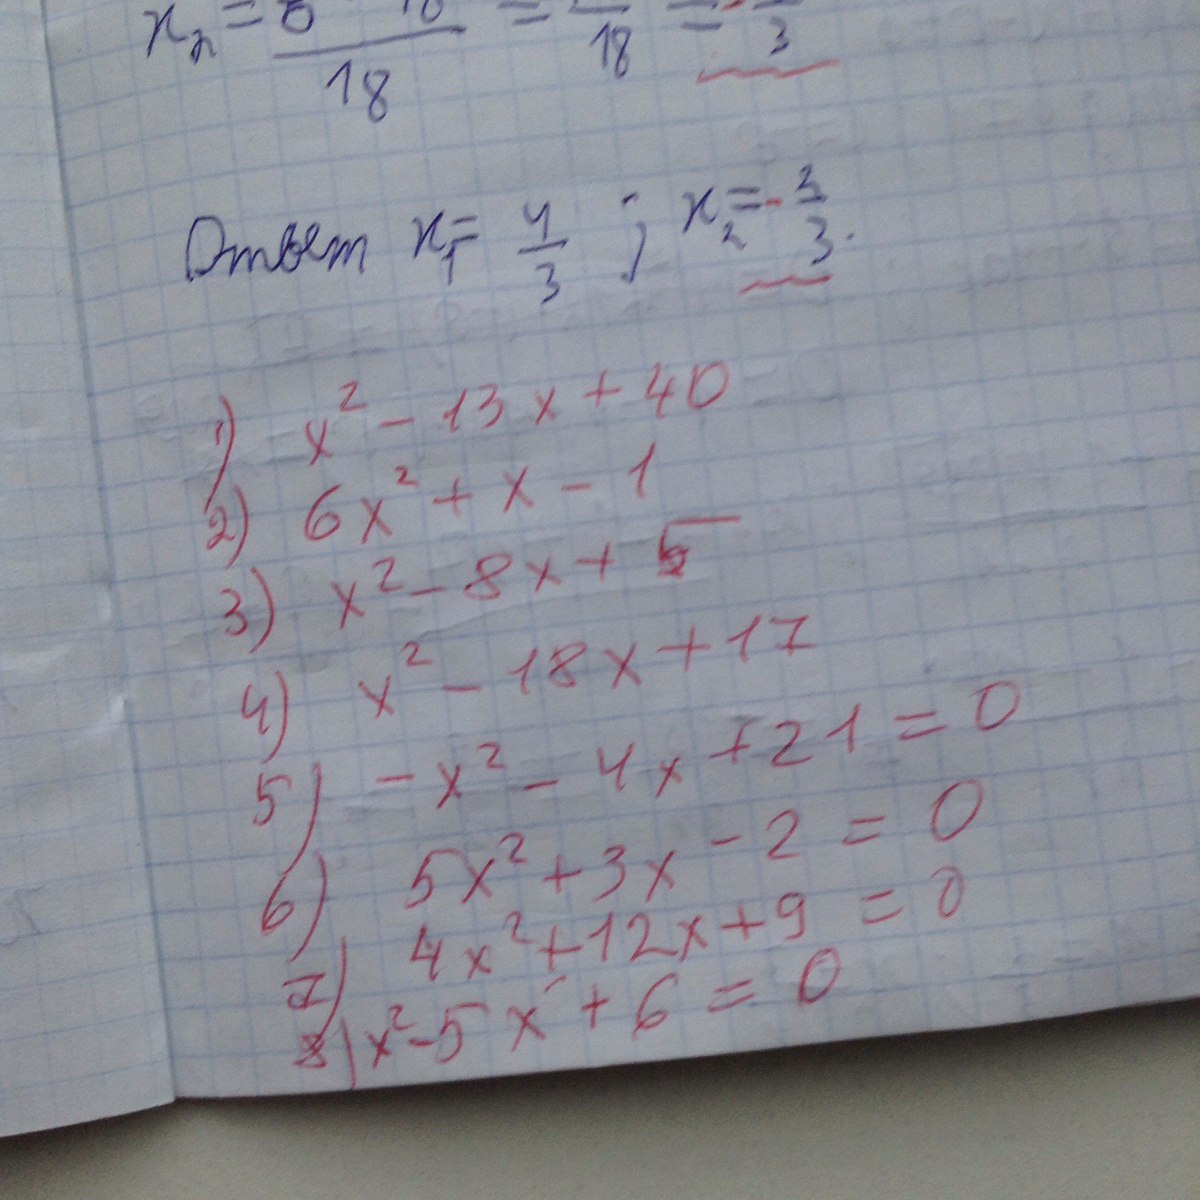 x₂ = 6 - 18 / 18 = / 18 = - / 3
Ответ x₁ = 4/3 ; x₂ = - 2/3.
1) x² - 13x + 40
2) 6x² + x - 1
3) x² - 8x + 5
4) x² - 18x + 17
5) -x² - 4x + 21 = 0
6) 5x² + 3x - 2 = 0
7) 4x² + 12x + 9 = 0
8) x² - 5x + 6 = 0